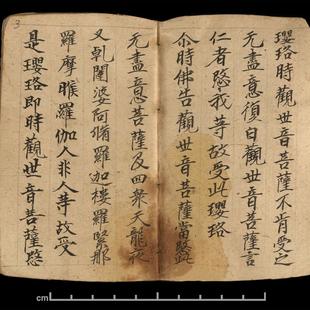 瓔珞時觀世音菩薩不肯受之
无盡意復白觀世音菩薩言
仁者愍我等故受此瓔珞
尒時佛告觀世音菩薩當愍此
无盡意菩薩及四衆天龍夜
叉乹闥婆阿脩羅迦樓羅緊那
羅摩睺羅伽人非人等故受
是瓔珞即時觀世音菩薩愍
3
cm